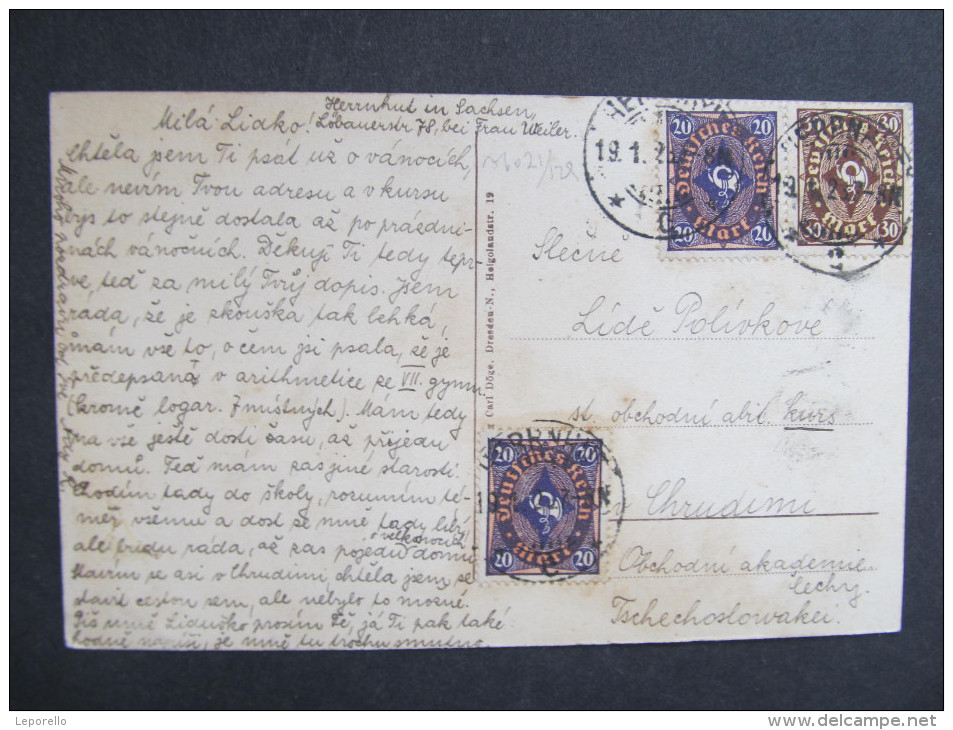 Herrnhut in Sachsen,
Löbauerstr 78, bei Frau Weiler.
Milá Lidko!
chtěla jsem Ti psát už o vánocích,
ale nevím Tvou adresu a v kursu
bys to stejně dostala až po prázdni-
nách vánočních. Děkuji Ti tedy tepr-
ve, teď za milý Tvůj dopis. Jsem
ráda, že je zkouška tak lehká,
mám vše to, o čem jsi psala, že je
předepsaná v arithmetice ze VII. gymn.
(kromě logar. 7 místných). Mám tedy
na vše ještě dosti času, až přijedu
domů. Teď mám zas jiné starosti.
Chodím tady do školy, rozumím té-
měř všemu a dost se mně tady líbí,
o velkonocích
ale budu ráda, až zas pojedu domů
Stavím se asi v Chrudimi, chtěla jsem se
stavit cestou sem, ale nebylo to možné.
Piš mně Liduško prosím Tě, já Ti pak také
hodně napíši, je mně tu trochu smutno.
Carl Döge, Dresden-N., Helgolandstr. 19
19.1.
20 20
Deutsches Reich
Mark
20 20
30 30
Deutsches Reich
Mark
30 30
Slečně
Lídě Polívkově
st. obchodní abit. kurs
Chrudimi
Obchodní akademie.
Čechy.
Tschechoslowakei.
20 20
Deutsches Reich
Mark
20 20
Leporello
www.delcampe.net